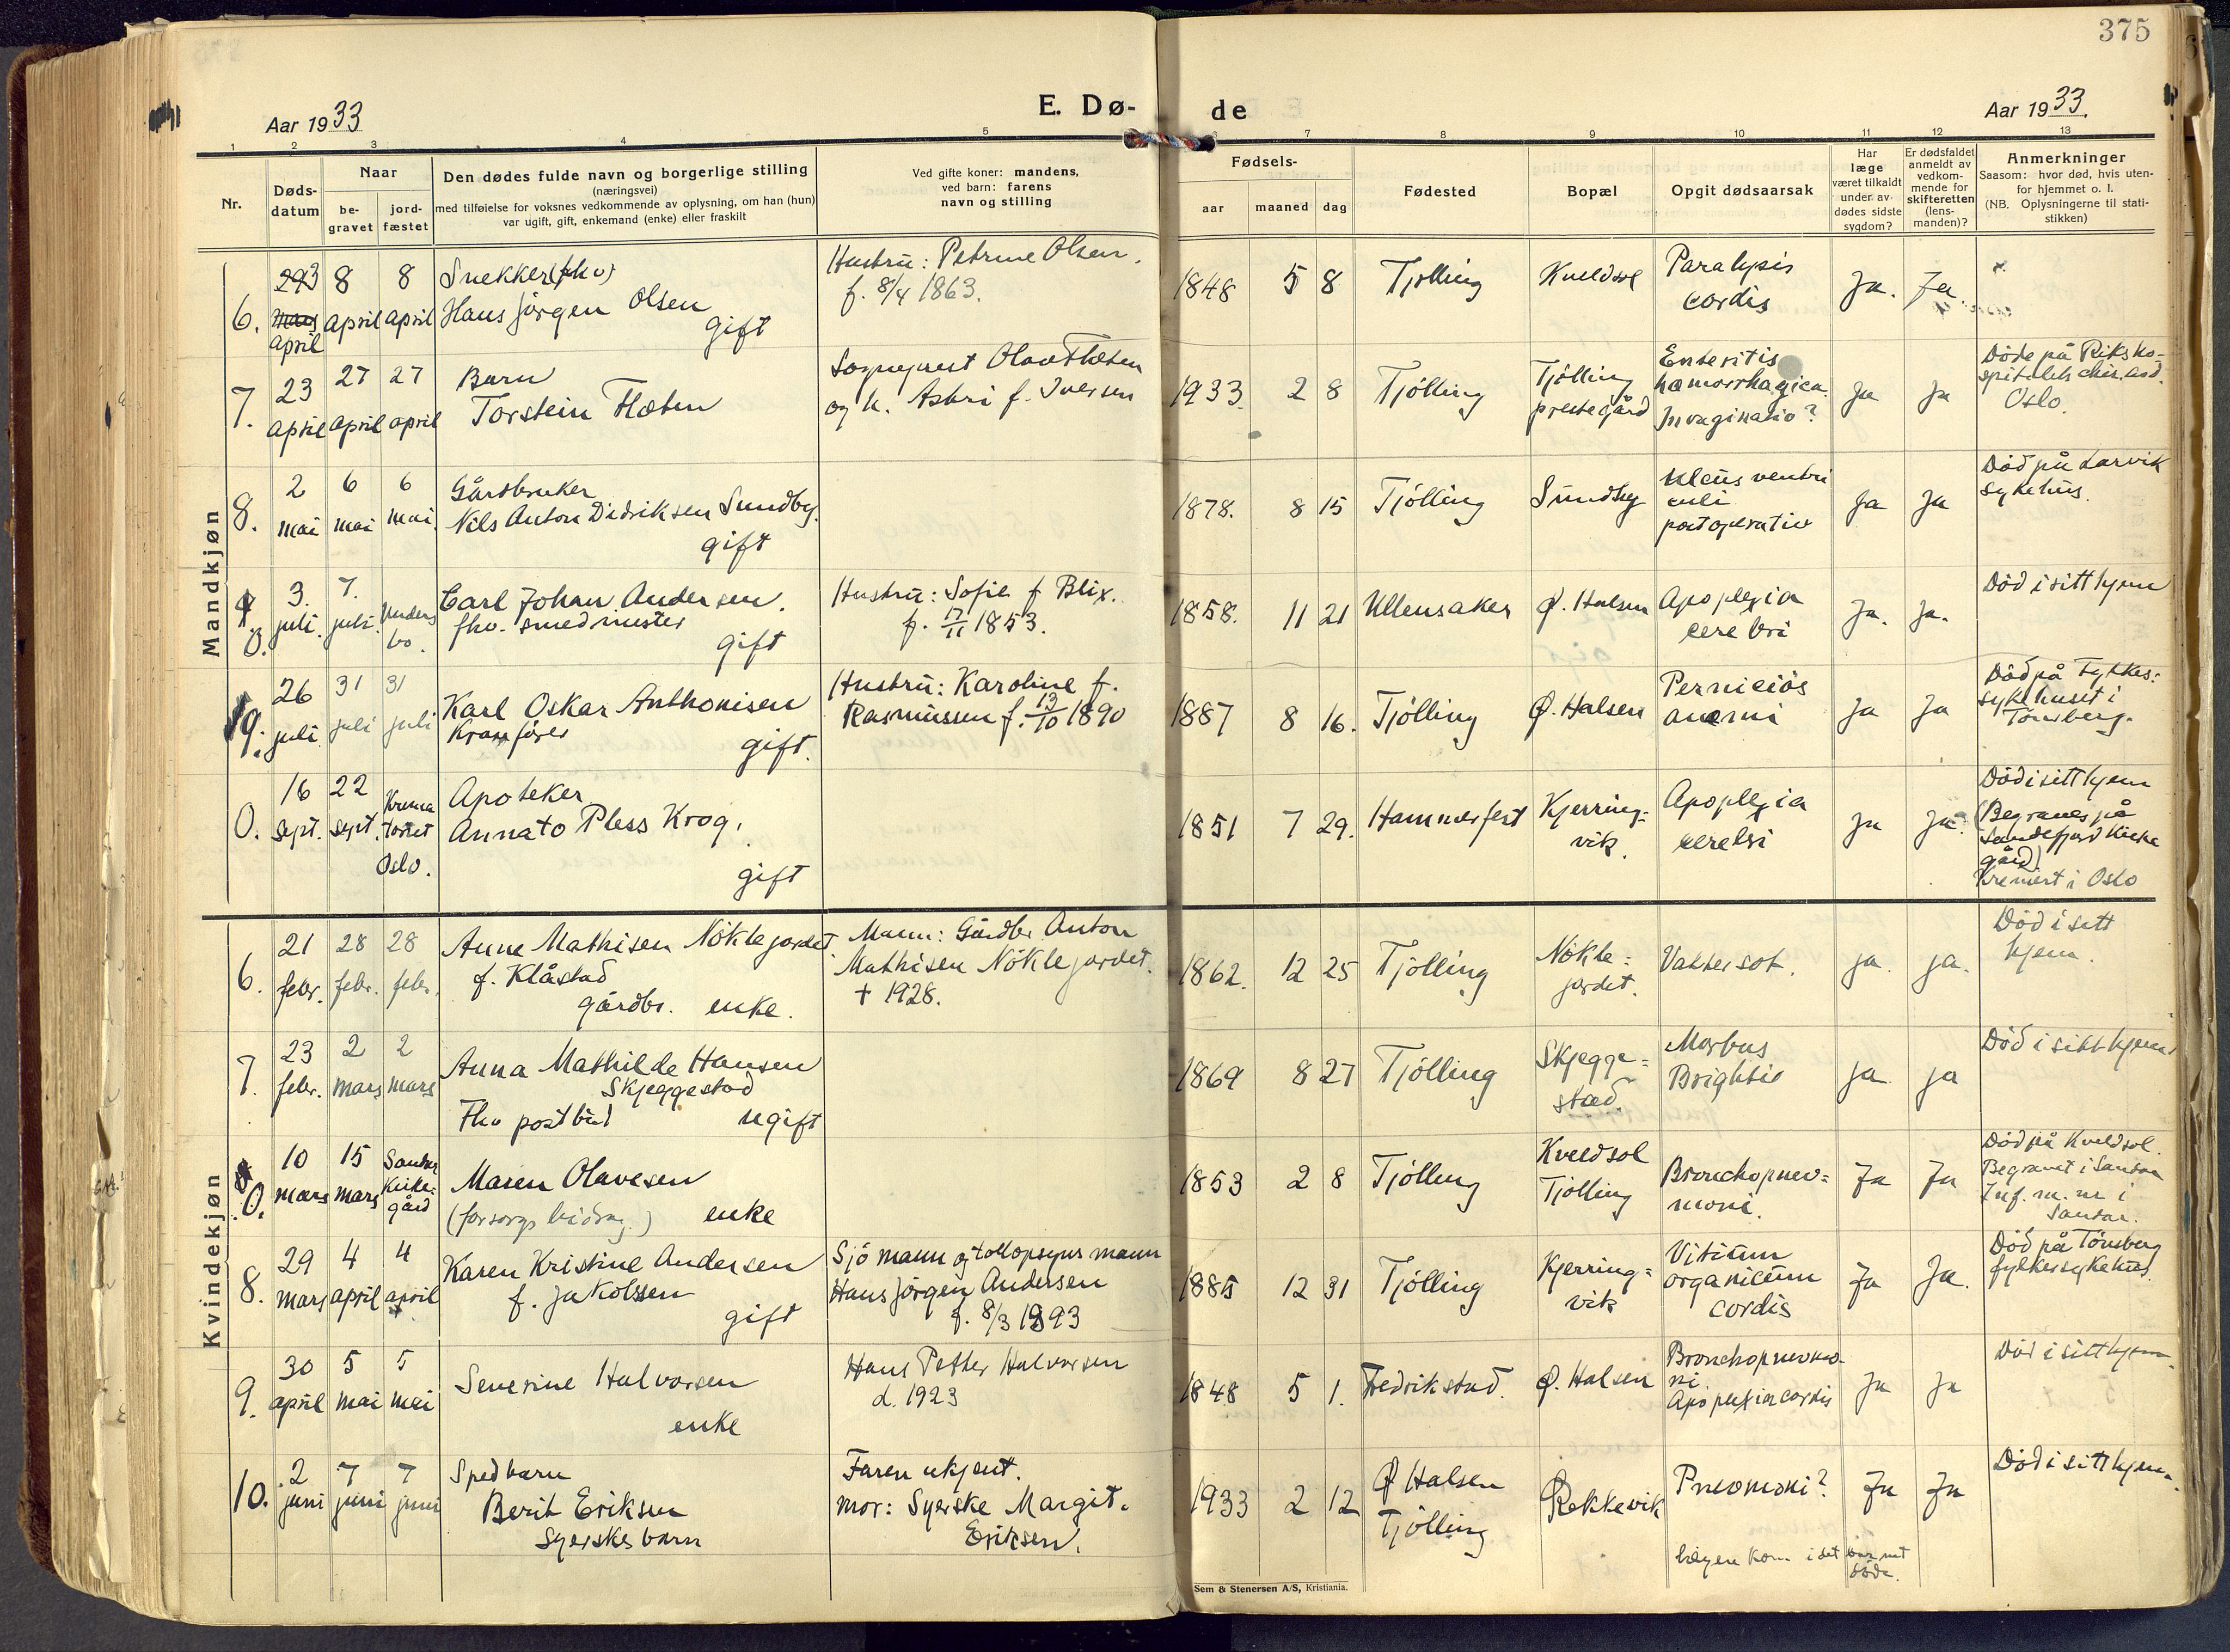 375
Aar 1933
E. Dø-
de
Aar 1933.
1 2 3 4 5 6 7 8 9 10 11 12 13
Nr.
Døds-
datum
Naar
be-
gravet
jord-
fæstet
Den dødes fulde navn og borgerlige stilling
(næringsvei)
med tilføielse for voksnes vedkommende av oplysning, om han (hun)
var ugift, gift, enkemand (enke) eller fraskilt
Ved gifte koner: mandens,
ved barn: farens
navn og stilling
Fødsels-
aar maaned dag
Fødested
Bopæl
Opgit dødsaarsak
Har
læge
været tilkaldt
under av-
dødes sidste
sygdom?
Er dødsfaldet
anmeldt av
vedkom-
mende for
skifteretten
(lens-
manden)?
Anmerkninger
Saasom: hvor død, hvis uten-
for hjemmet o. l.
(NB. Oplysningerne til stati-
stikken)
Mandkjøn
6.
mars
april
8
april
8
april
Snekker (fhv)
Hans Jörgen Olsen
gift
Hustru: Petrine Olsen.
f. 8/4 1863.
1848 5 8
Tjølling
Kveldsol
Paralysis
cordis
Ja. Ja.
7.
23
april
27
april
27
april
Barn
Torstein Floeten
Sogneprest Olav Floeten
og h. Astri f. Iversen
1933. 2 8
Tjölling
Tjölling
prestegård
Enteritis
hæmorrhagica
Invaginatio?
ja ja
Döde på Riksho-
spitalets chir. avd.
Oslo.
8.
2
mai
6
mai
6
mai.
Gårdbruker
Nils Anton Didriksen Sundby.
gift
1878. 8 15
Tjölling
Sundby
Ulcus ventri
culi
postoperativ
ja ja
Död på Larvik
sykehus.
0.
3.
juli.
7.
juli.
Carl Johan Andersen.
fhv. smedmester
gift
Hustru: Sofie f. Blix.
f. 17/11 1853.
1858. 11 21
Ullensaker
Ø. Halsen
Apoplexia
cerebri
Ja. Ja.
Död i sitt hjem
9.
26
juli.
31
juli
31
juli
Karl Oskar Anthonisen
gift.
Hustru: Karoline f.
Rasmussen f. 13/10 1890
1887 8 16.
Tjölling
Ø. Halsen
Perniciös
anæmi
ja ja
Död på Fylkes:
sykehuset i
Tönsberg.
0.
16
sept.
22
sept.
Krema
toriet
Oslo.
Apoteker
Annato Pless Krog.
gift
1851 7 29.
Hammerfest
Kjerring-
vik.
Apoplexia
cerebri
ja ja.
Död i sitt hjem
(Begraves på
Sandefjord kirke
gård)
Kremert i Oslo
Kvindekjøn
6.
21
febr.
28
febr.
28
febr.
Anne Mathisen Nöklegordet
f. Klåstad
gårdbr. enke.
Mann: Gårdbr. Anton
Mathisen Nöklegordet.
† 1928.
1862. 12 25
Tjölling
Nökle=
jordet.
Vattersot.
ja. ja.
Död i sitt
hjem.
7.
23
febr.
2
mars
2
mars
Anna Mathilde Hansen
Skjeggestad
Fhv postbud ugift
1869 8 27
Tjölling
Skjegge=
stad.
Morbus
Brightii
ja ja
Död i sitt hjem.
0.
10
mars
15
mars
Sandar
kirke-
gård
Maren Olavesen
(forsorgs bidrag.) enke
1853 2 8
Tjölling
Kveldsol
Tjölling
Bronchopnev=
moni.
Ja Ja
Död på Kveldsol.
Begravet i Sandar
Inf. m. nr i
Sandar.
8.
29
mars
4
april
4
april
Karen Kristine Andersen
f. Jakobsen
gift
Sjömann og tollopsynsmann
Hans Jörgen Andersen
f. 8/3 1893
1885 12 31
Tjölling
Kjerring=
vik
Vitium
organicum
cordis
Ja Ja.
Död på Tönsberg
fylkessykehus.
9.
30
april
5
mai
5
mai
Severine Halvorsen
enke
Hans Petter Halvorsen
d. 1923
1848 5 1.
Fredrikstad.
Ø. Halsen
Bronchopneumo-
ni
Apoplexia cordis
Ja Ja
Död i sitt hjem.
10.
2
juni
7
juni
7
juni
Spedbarn
Berit Eriksen
Syerskes barn
Faren ukjent.
Mor: Syerske Margit
Eriksen.
1933 2 12
Ø Halsen
Tjölling
Rekkevik
Pneomoni?
Ja Ja
Död i sitt hjem.
lægen kom i det barnet
döde.
Sem & Stenersen A/S, Kristiania.